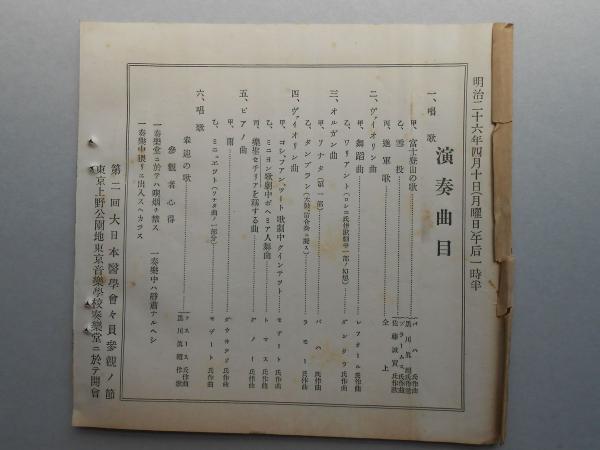 明治二十六年四月十日(月曜日)午后一時半
演奏曲目
一、唱歌
甲、富士登山の歌 バハ氏作曲 黒川眞頼氏作歌
乙、雪投 ブラームス氏作曲 佐藤誠實氏作歌
丙、進軍歌 仝上
二、ヴァイオリン曲
甲、舞蹈曲 レフオール氏作曲
乙、ワリアント(ロシニ氏作歌劇中一部ノ幻想) ダンクラ氏作曲
三、オルガン曲
甲、ソナタ(第一部) バハ氏作曲
乙、タンブラン ラモー氏作曲
四、ヴァイオリン曲
甲、コシ、フアン、ツート歌劇中クインテツト モザート氏作曲
乙、ミニヨン歌劇中ボヘミア人舞曲 トマス氏作曲
丙、樂聖セチリアを頌する曲 グノー氏作曲
五、ピアノ曲
甲、雨
乙、ミニュエツト(ソナタ曲ノ一部分) モザート氏作曲
六、唱歌
奉迎の歌 黒川眞頼作歌
參觀者心得
一奏樂堂ニ於テハ喫烟ヲ禁ス
一奏樂中ハ靜肅ナルヘシ
一奏樂中猥リニ出入スヘカラス
第二回大日本醫學會々員參觀ノ節
東京上野公園地東京音樂學校奏樂堂ニ於テ開會